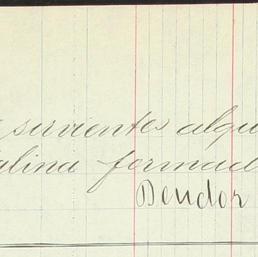 sirvientes alqu
alina formad
Deudor